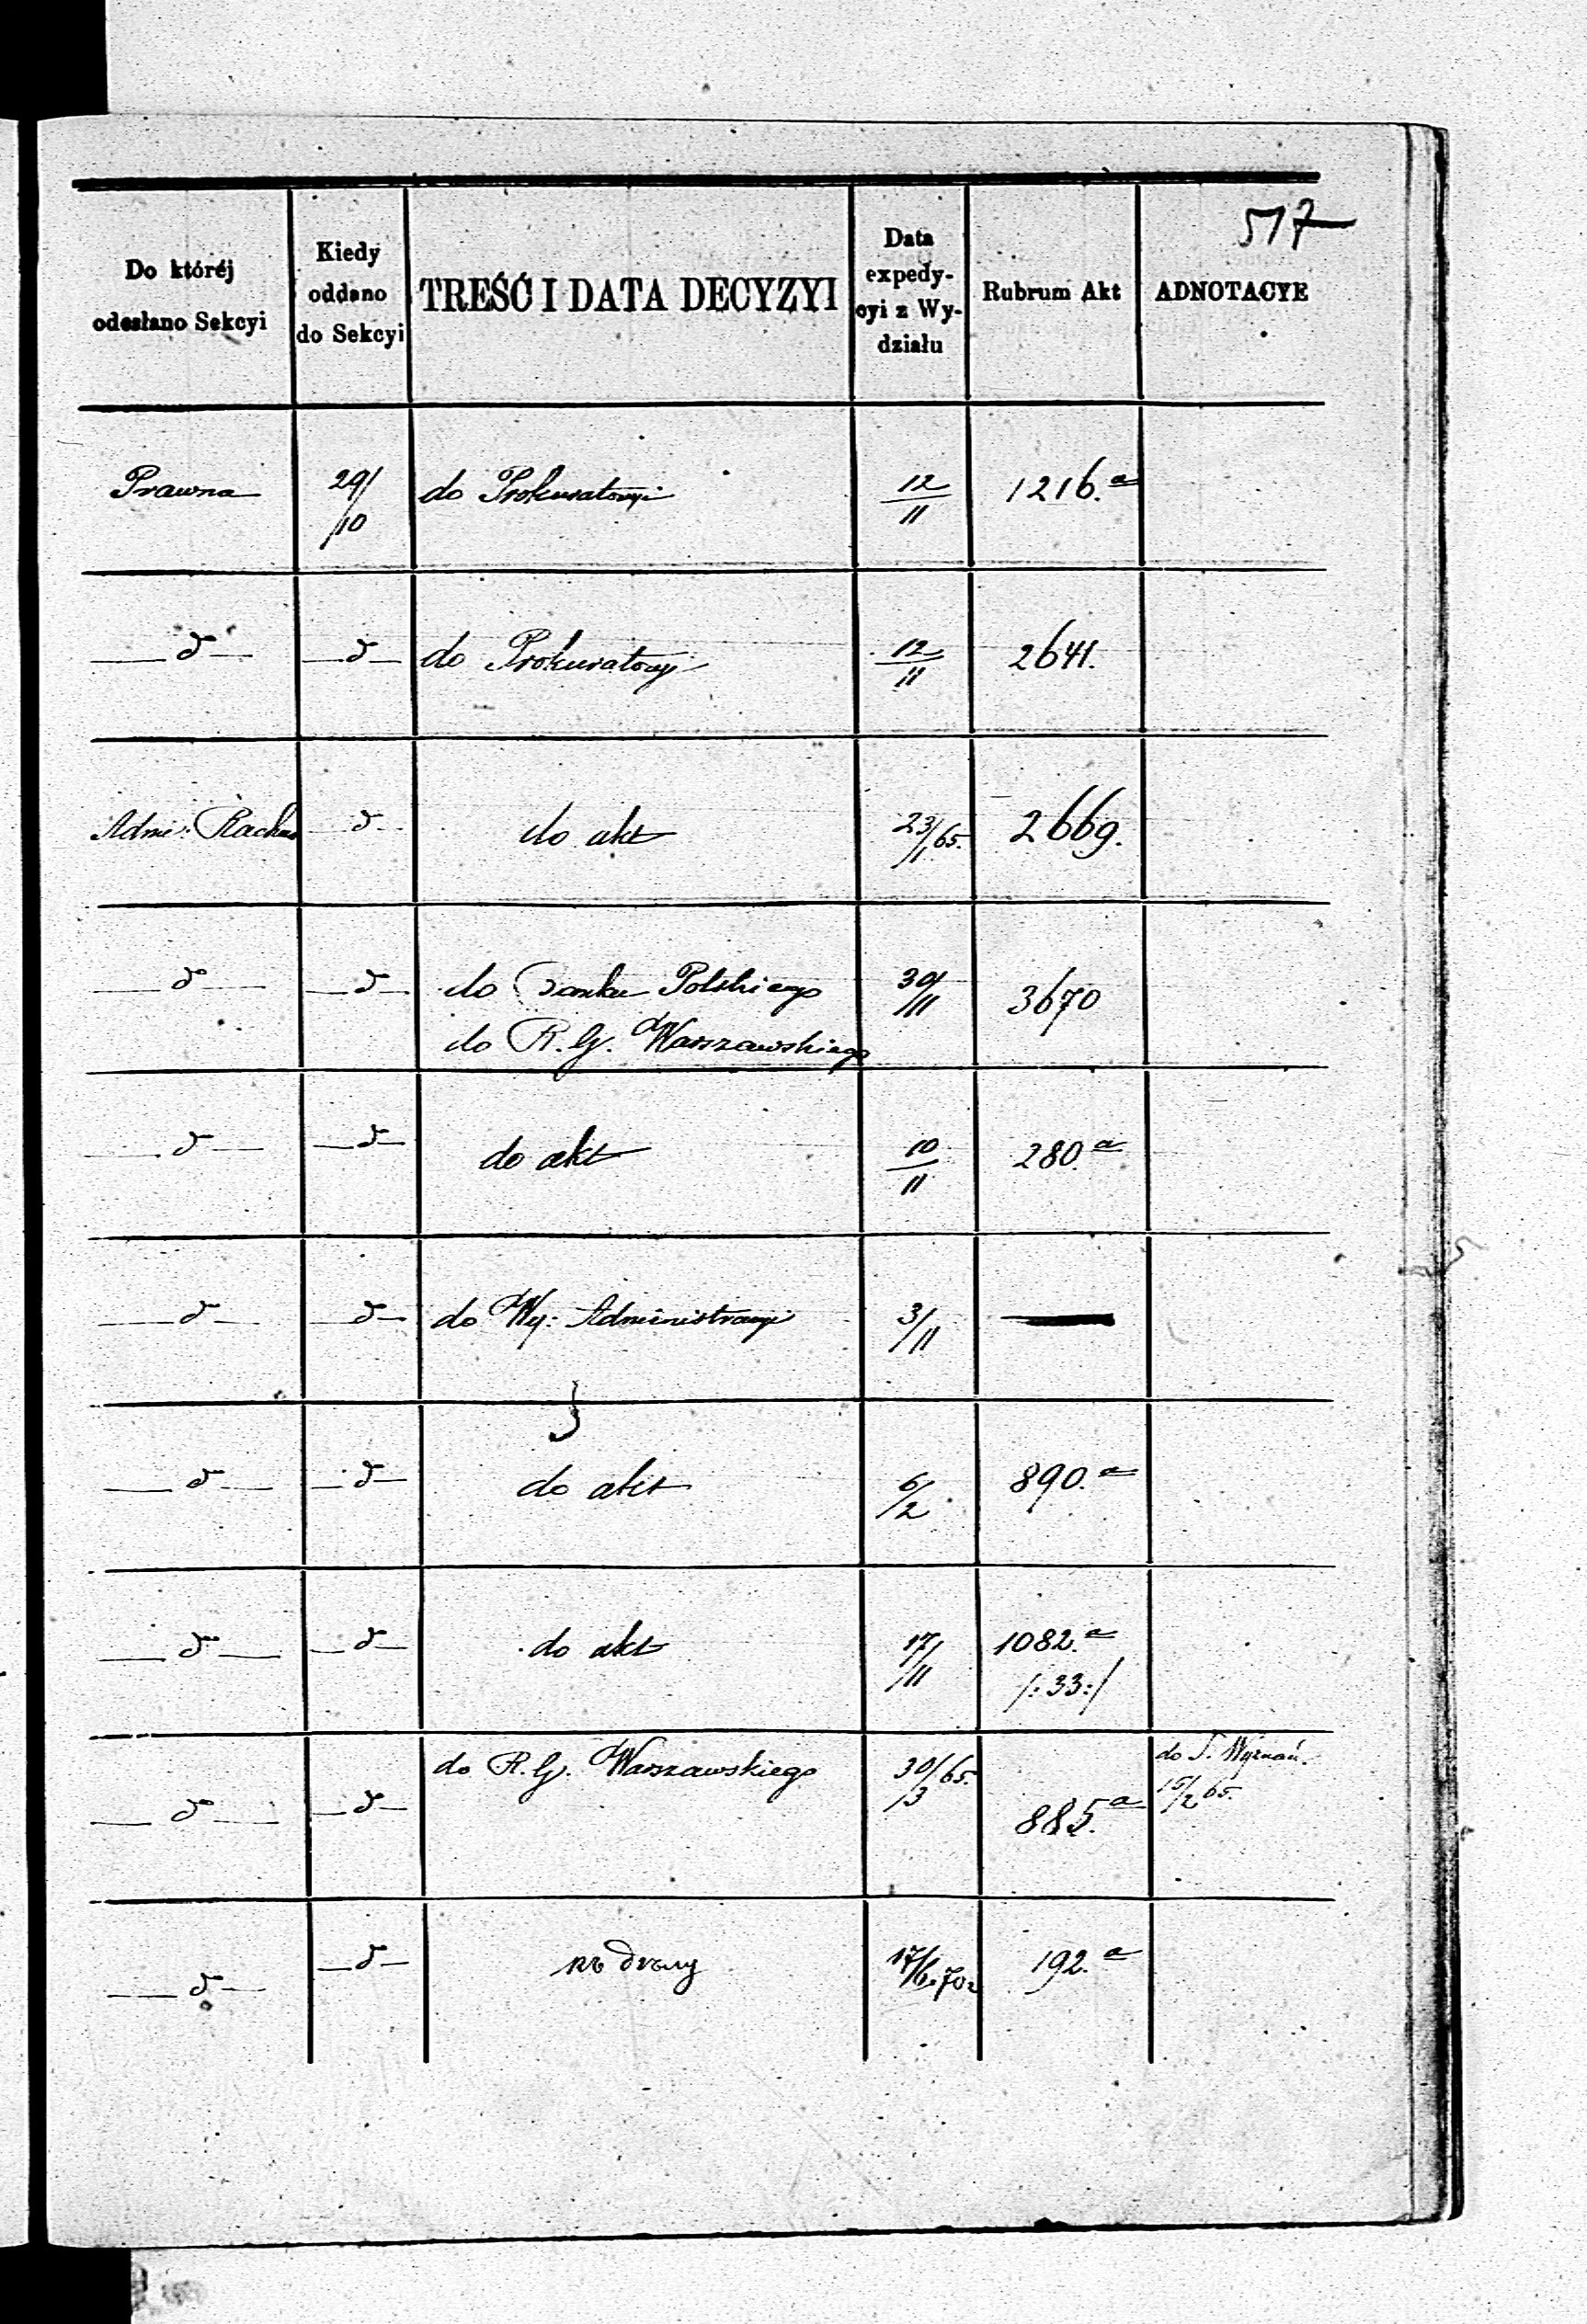 517
Do któréj odesłano Sekcyi | Kiedy oddano do Sekcyi | TREŚĆ I DATA DECYZYI | Data expedycyi z Wydziału | Rubrum Akt | ADNOTACYE
Prawna | 29/10 | do Prokuratoryi | 12/11 | 1216.a
d | d | do Prokuratoryi | 12/11 | 2641.
Adm: Rachu | d | do akt | 23/1 65. | 2669.
d | d | do Banku Polskiego | 30/11 | 3670
do R. G. Warszawskiego
d | d | do akt | 10/11 | 280.a
d | d | do Wy: Administracyi | 3/11 | —
d | d | do akt | 6/2 | 890.a
d | d | do akt | 17/11 | 1082.a
/: 33 :/
d | d | do R. G. Warszawskiego | 30/3 65. | 885.a | do S. Wyznań.
15/2 65.
d | d | къ дѣлу | 17/6 70 | 192.a